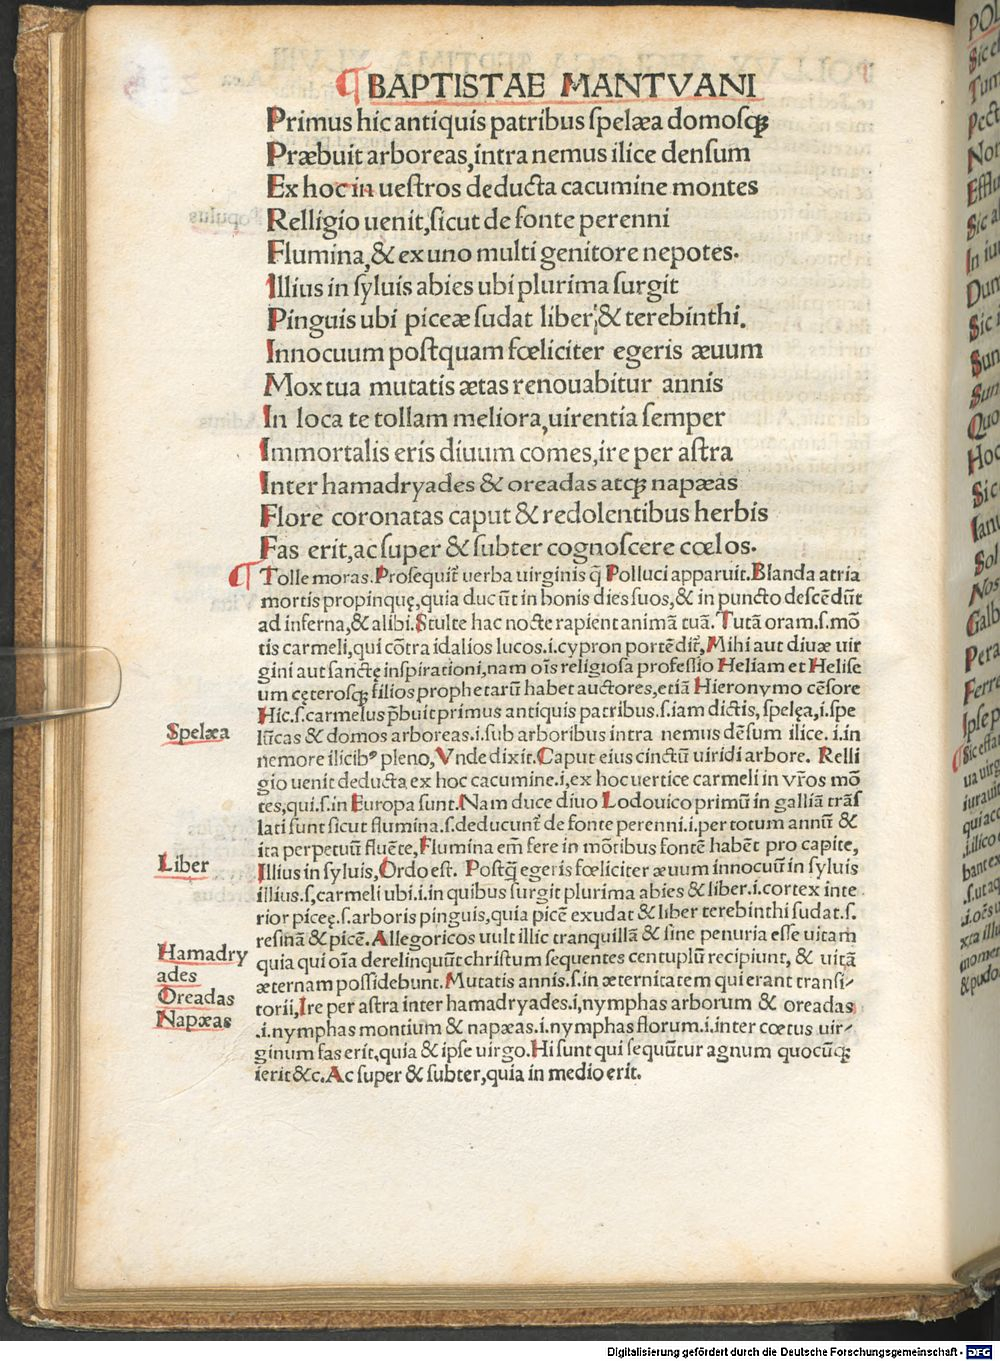 ¶BAPTISTAE MANTVANI
Primus hic antiquis patribus ſpelæa domoſqꝫ
Præbuit arboreas,intra nemus ilice denſum
Ex hoc in ueſtros deducta cacumine montes
Relligio uenit,ſicut de fonte perenni
Flumina,& ex uno multi genitore nepotes.
Illius in ſyluis abies ubi plurima ſurgit
Pinguis ubi piceæ ſudat liber,& terebinthi.
Innocuum poſtquam fœliciter egeris æuum
Mox tua mutatis ætas renouabitur annis
In loca te tollam meliora,uirentia ſemper
Immortalis eris diuum comes,ire per aſtra
Inter hamadryades & oreadas atqꝫ napæas
Flore coronatas caput & redolentibus herbis
Fas erit,ac ſuper & ſubter cognoſcere cœlos.
¶ Tolle moras.Proſequit᷑ uerba uirginis q̄ Polluci apparuit.Blanda atria
mortis propinquę,quia ducūt in bonis dies ſuos,& in puncto deſcēdūt
ad inferna,& alibi.Stulte hac nocte rapient animā tuā.Tutā oram.ſ.mō
tis carmeli,qui cōtra idalios lucos.i.cypron portēdit᷑,Mihi aut diuæ uir
gini aut ſanctę inſpirationi,nam oīs religioſa profeſſio Heliam et Heliſe
um cęteroſqꝫ filios prophetarū habet auctores,etiā Hieronymo cēſore
Hic.ſ.carmelus p̄buit primus antiquis patribus.ſ.iam dictis,ſpelęa,i.ſpe
lūcas & domos arboreas.i.ſub arboribus intra nemus dēſum ilice.i.in
nemore ilicibꝰ pleno,Vnde dixit.Caput eius cinctū uiridi arbore. Relli
gio uenit deducta ex hoc cacumine.i,ex hoc uertice carmeli in vr̄os mō
tes,qui.ſ.in Europa ſunt.Nam duce diuo Lodouico primū in galliā trāſ
lati ſunt ſicut flumina.ſ.deducunt᷑ de fonte perenni.i.per totum annū &
ita perpetuū fluēte,Flumina em̄ fere in mōtibus fontē habēt pro capite,
Illius in ſyluis,Ordo eſt. Poſtq̄ egeris fœliciter æuum innocuū in ſyluis
illius.ſ,carmeli ubi.i.in quibus ſurgit plurima abies & liber.i.cortex inte
rior piceę.ſ.arboris pinguis,quia picē exudat & liber terebinthi ſudat.ſ.
reſinā & picē. Allegoricos uult illic tranquillā & ſine penuria eſſe uitam
quia qui oīa derelinquūt chriſtum ſequentes centuplū recipiunt, & uitā
æternam poſſidebunt. Mutatis annis.ſ.in æternitatem qui erant tranſi⸗
torii,Ire per aſtra inter hamadryades.i,nymphas arborum & oreadas
.i.nymphas montium & napæas.i.nymphas florum.i.inter cœtus uir⸗
ginum fas erit,quia & ipſe uirgo.Hi ſunt qui ſequūtur agnum quocūqꝫ
ierit &c.Ac ſuper & ſubter,quia in medio erit.
Spelæa
Liber
Hamadry
ades
Oreadas
Napæas
Digitalisierung gefördert durch die Deutsche Forschungsgemeinschaft - DFG